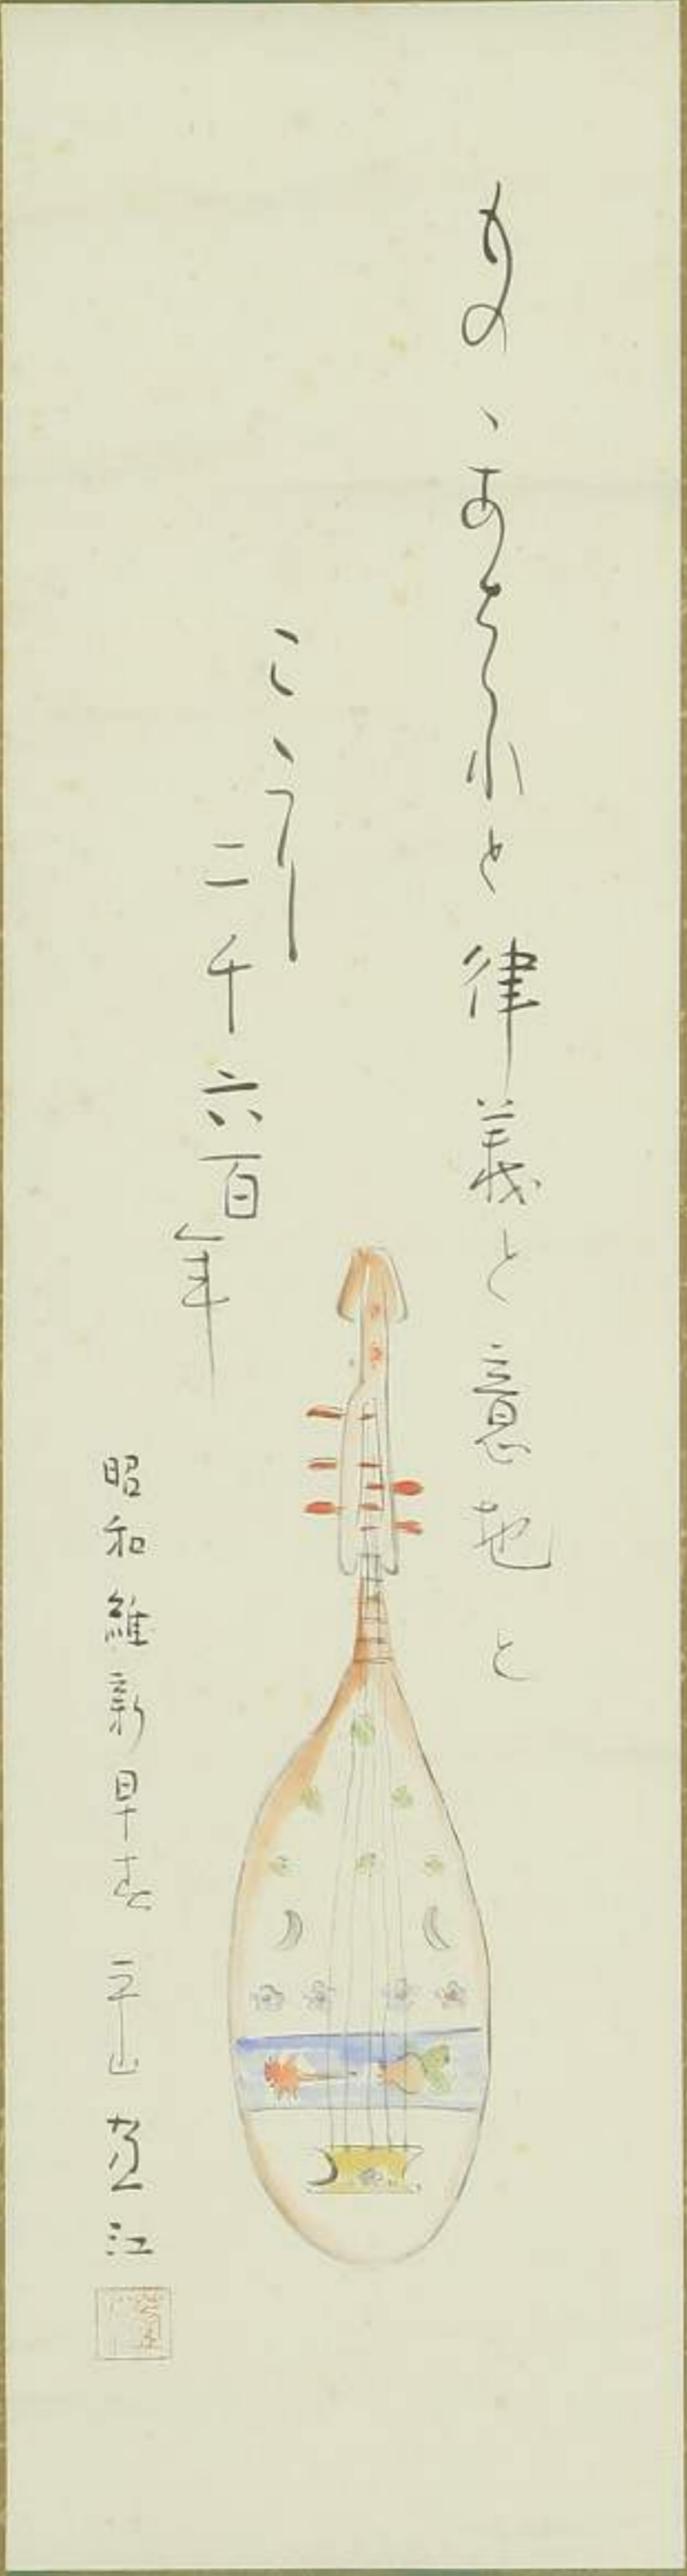 ものゝあはれと律義と意地と
こゝろし
二千六百年
昭和維新早春 平山芦江